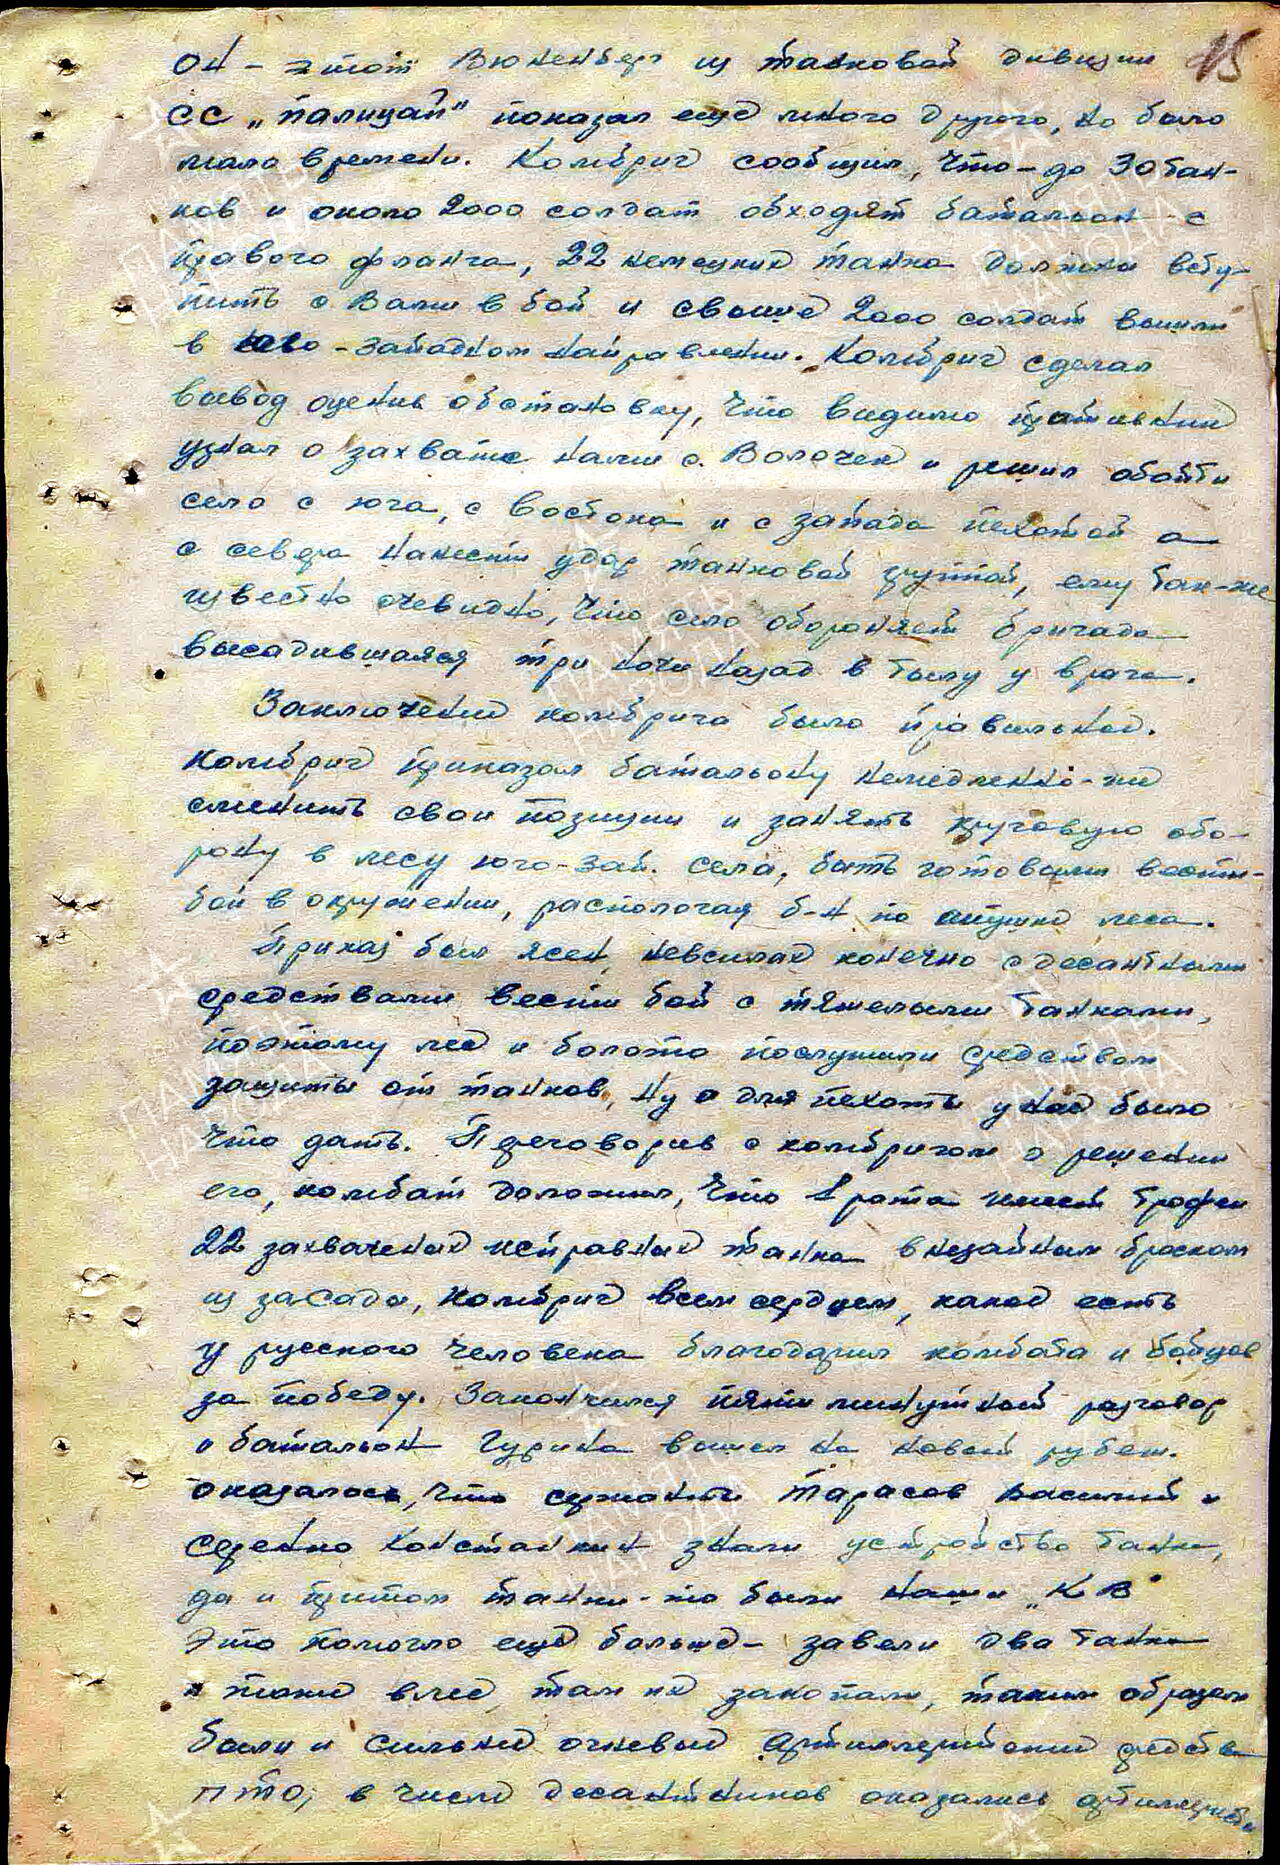 15
он - этот Вюненберг из танковой дивизии
СС „Палицай" показал еще много другого, но было
мало времени. Комбриг сообщил, что - до 30 тан-
ков и около 2000 солдат обходят батальон с
правого фланга, 22 немецких танка должны всту-
пить с Вами в бой и свыше 2000 солдат вышли
в юго-западном направлении. Комбриг сделал
вывод оценив обстановку, что видимо противник
узнал о захвате нами с. Волочек и решил обойти
село с юга, с востока и с запада пехотой а
с севера нанести удар танковой группой, ему так-же
известно очевидно, что село обороняет бригада
высадившаяся три ночи назад в тылу у врага.
Заключение комбрига было правильное.
Комбриг приказал батальону немедленно-же
сменить свои позиции и занять круговую обо-
рону в лесу юго-зап. села, быть готовыми вести-
бой в окружении, располагая б-н по опушке леса.
Приказ был ясен, невсилах конечно с десантными
средствами вести бой с тяжелыми танками,
поэтому лес и болото послужили средством
защиты от танков, ну а для пехоты у нас было
что дать. Переговорив с комбригом о решении
его, комбат доложил, что 1 рота имеет трофеи
22 захваченых исправных танка внезапным броском
из засады, комбриг всем сердцем, какое есть
у русского человека благодарил комбата и бойцов
за победу. Закончился пяти минутный разговор
и батальон Гурина вышел на новый рубеж.
оказалось, что сержанты Тарасов Василий и
Середко Константин знали устройство танка,
да и притом танки-то были наши „КВ"
Это помогло еще больше - завели два танка
и тоже влес, там их закопали, таким образом
были и сильные огневые артиллерийские средства
ПТО; в числе десантников оказались артиллеристы
ПАМЯТЬ НАРОДА